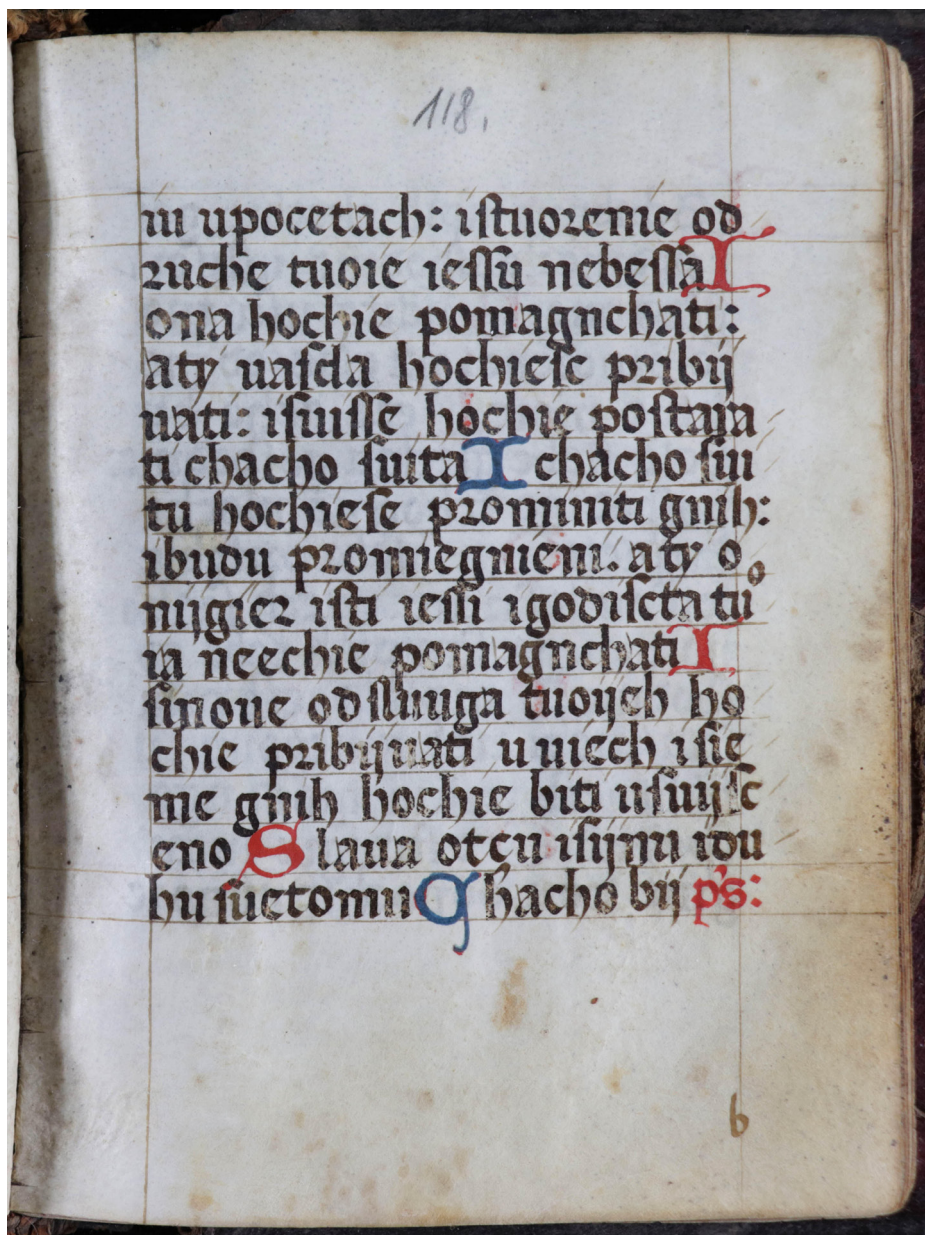 118.
iu upocetach: istuorenie od
ruche tuoie iessu nebessa I
ona hochie pomagnchati:
aty uasda hochiesc pribij
uati: isuisse hochie postaia
ti chacho suita I chacho sui
tu hochiese prominiti gnih:
ibudu promiegnieni. aty o
nijgier isti iessi igodiscta tuo
ia neechie pomagnchati I
sinoue od sluuga tuoijeh ho
chie pribijuati u uiech i sie
me gnih hochie biti usuuijsc
eno Slaua otcu isijnu idu
hu suetomu Chacho bij ps:
b